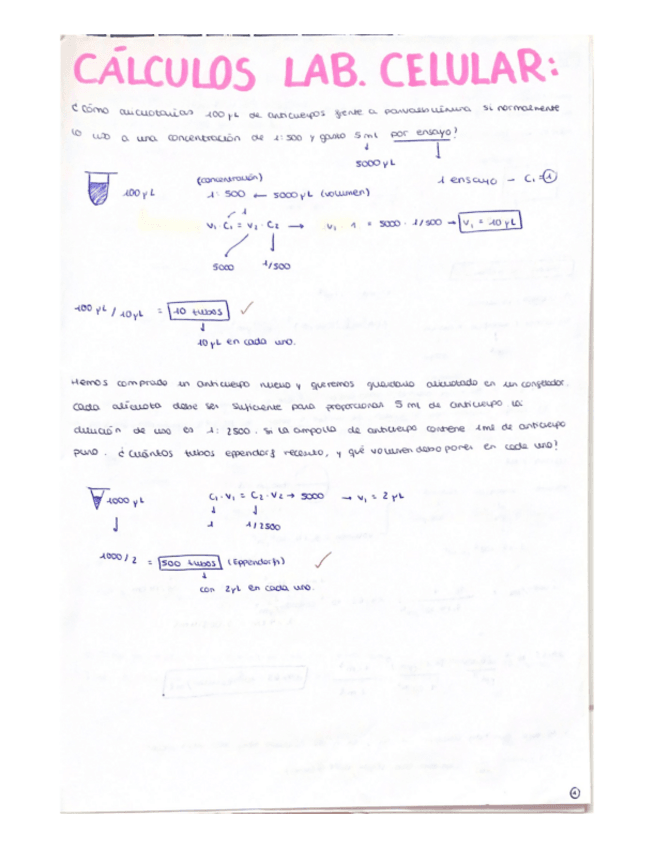 CÁLCULOS LAB. CELULAR:
¿Cómo alicuotarías 100 µL de anticuerpos frente a parvalbúmina si normalmente
lo uso a una concentración de 1:500 y gasto 5 ml por ensayo?
5000 µL
1 ensayo - C₁ = 1
100 µL
(concentración)
1:500 ← 5000 µL (volumen)
1
V₁ C₁ = V₂ · C₂ → V₁ · 1 = 5000 · 1/500 → V₁ = 10 µL
5000 1/500
100 µL / 10 µL = 10 tubos ✓
10 µL en cada uno.
Hemos comprado un anticuerpo nuevo y queremos guardarlo alicuotado en un congelador.
Cada alícuota debe ser suficiente para proporcionar 5 ml de anticuerpo
dilución de uso es 1:2500. Si la ampolla de anticuerpo contiene 1ml de anticuerpo
puro. ¿Cuántos tubos eppendorf necesito, y qué volumen debo poner en cada uno?
1000 µL
C₁ · V₁ = C₂ · V₂ → 5000 → V₁ = 2 µL
1 1/2500
1000/2 = 500 tubos (Eppendorfs) ✓
con 2µL en cada uno.
1